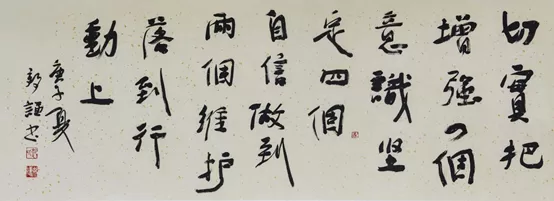 切實把
增强四個
意識坚
定四個
自信做到
兩個維护
落到行
動上
庚子夏
书